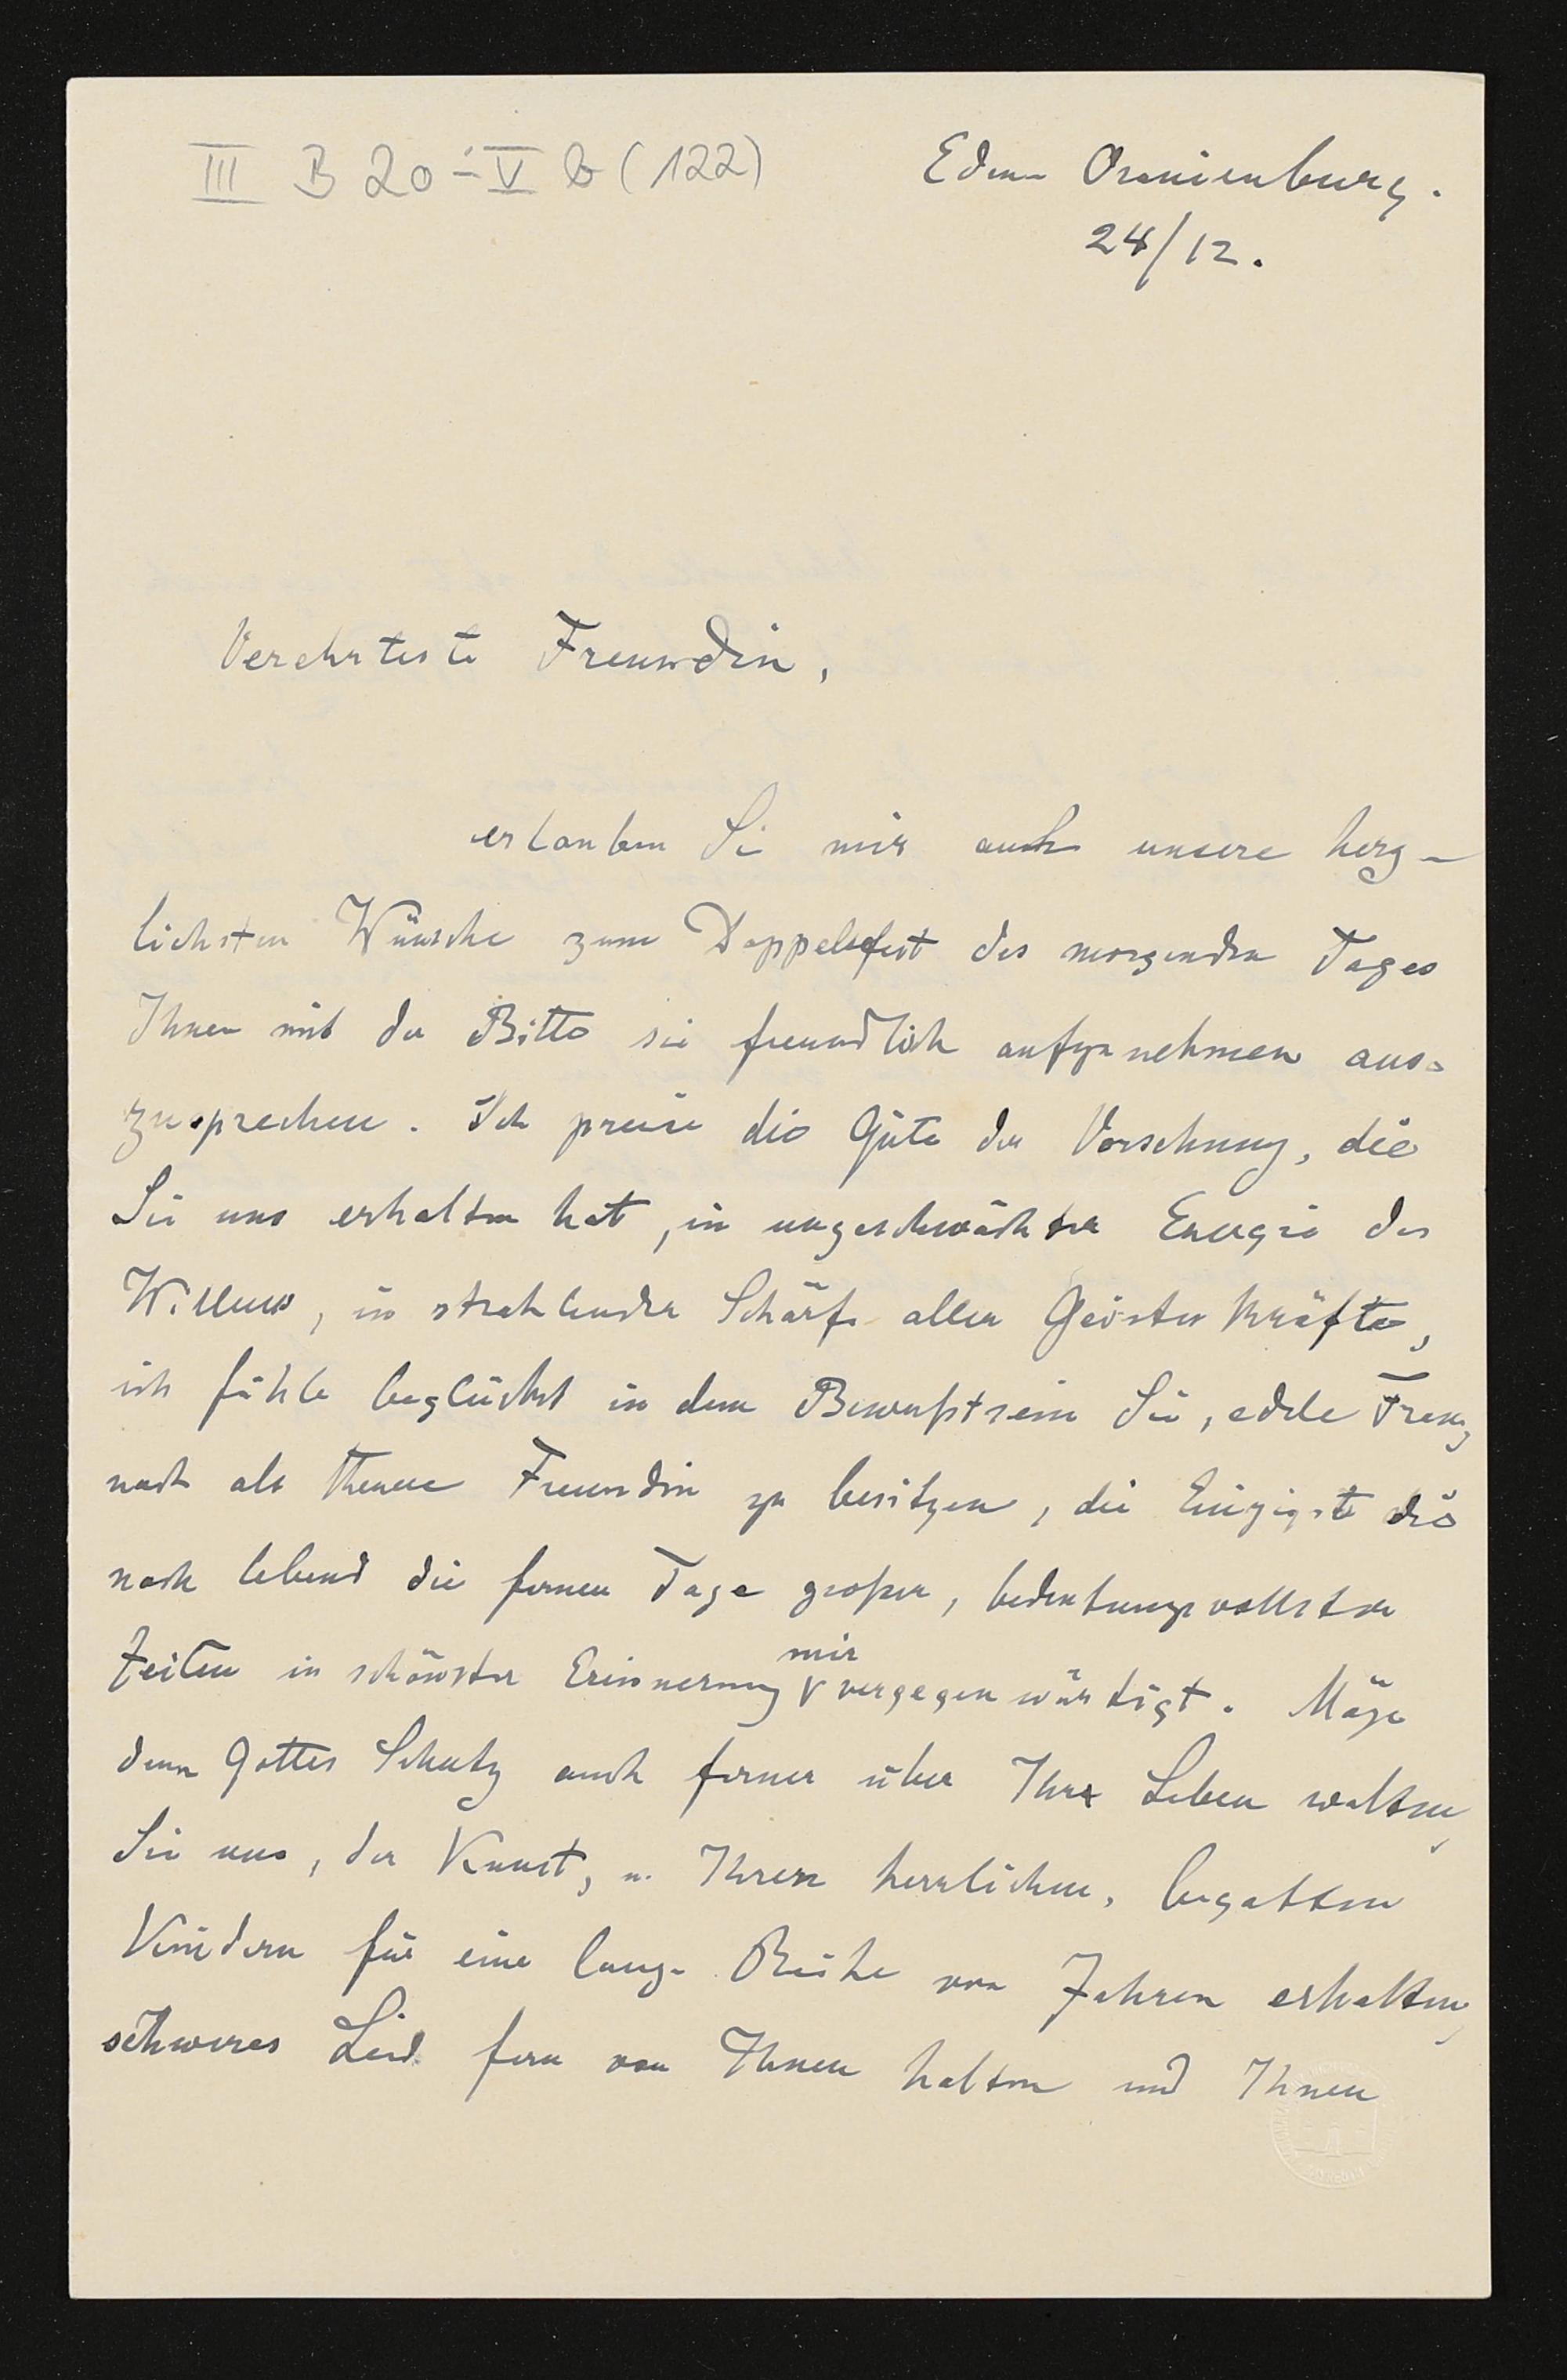 III B 20 - V b (122)
Eden Oranienburg.
24/12.
Verehrteste Freundin,
erlauben Sie mir auch unsere herz-
lichsten Wünsche zum Doppelfest des morgenden Tages
Ihnen mit der Bitte sie freundlich aufzunehmen aus-
zusprechen. Ich preise die Güte der Vorsehung, die
Sie uns erhalten hat, in ungeschwächter Energie des
Willens, in strahlender Schärfe aller Geisteskräfte,
ich fühle beglückt in dem Bewußtsein Sie, edele Frau,
noch als theuere Freundin zu besitzen, die Einzigste die
noch lebend die fernen Tage großer, bedeutungsvollster
Zeiten in schönster Erinnerung mir vergegenwärtigt. Möge
denn Gottes Schutz auch ferner über Ihr Leben walten,
Sie uns, der Kunst, u. Ihren herrlichen, begabten
Kindern für eine lange Reihe von Jahren erhalten,
schweres Leid fern von Ihnen halten und Ihnen